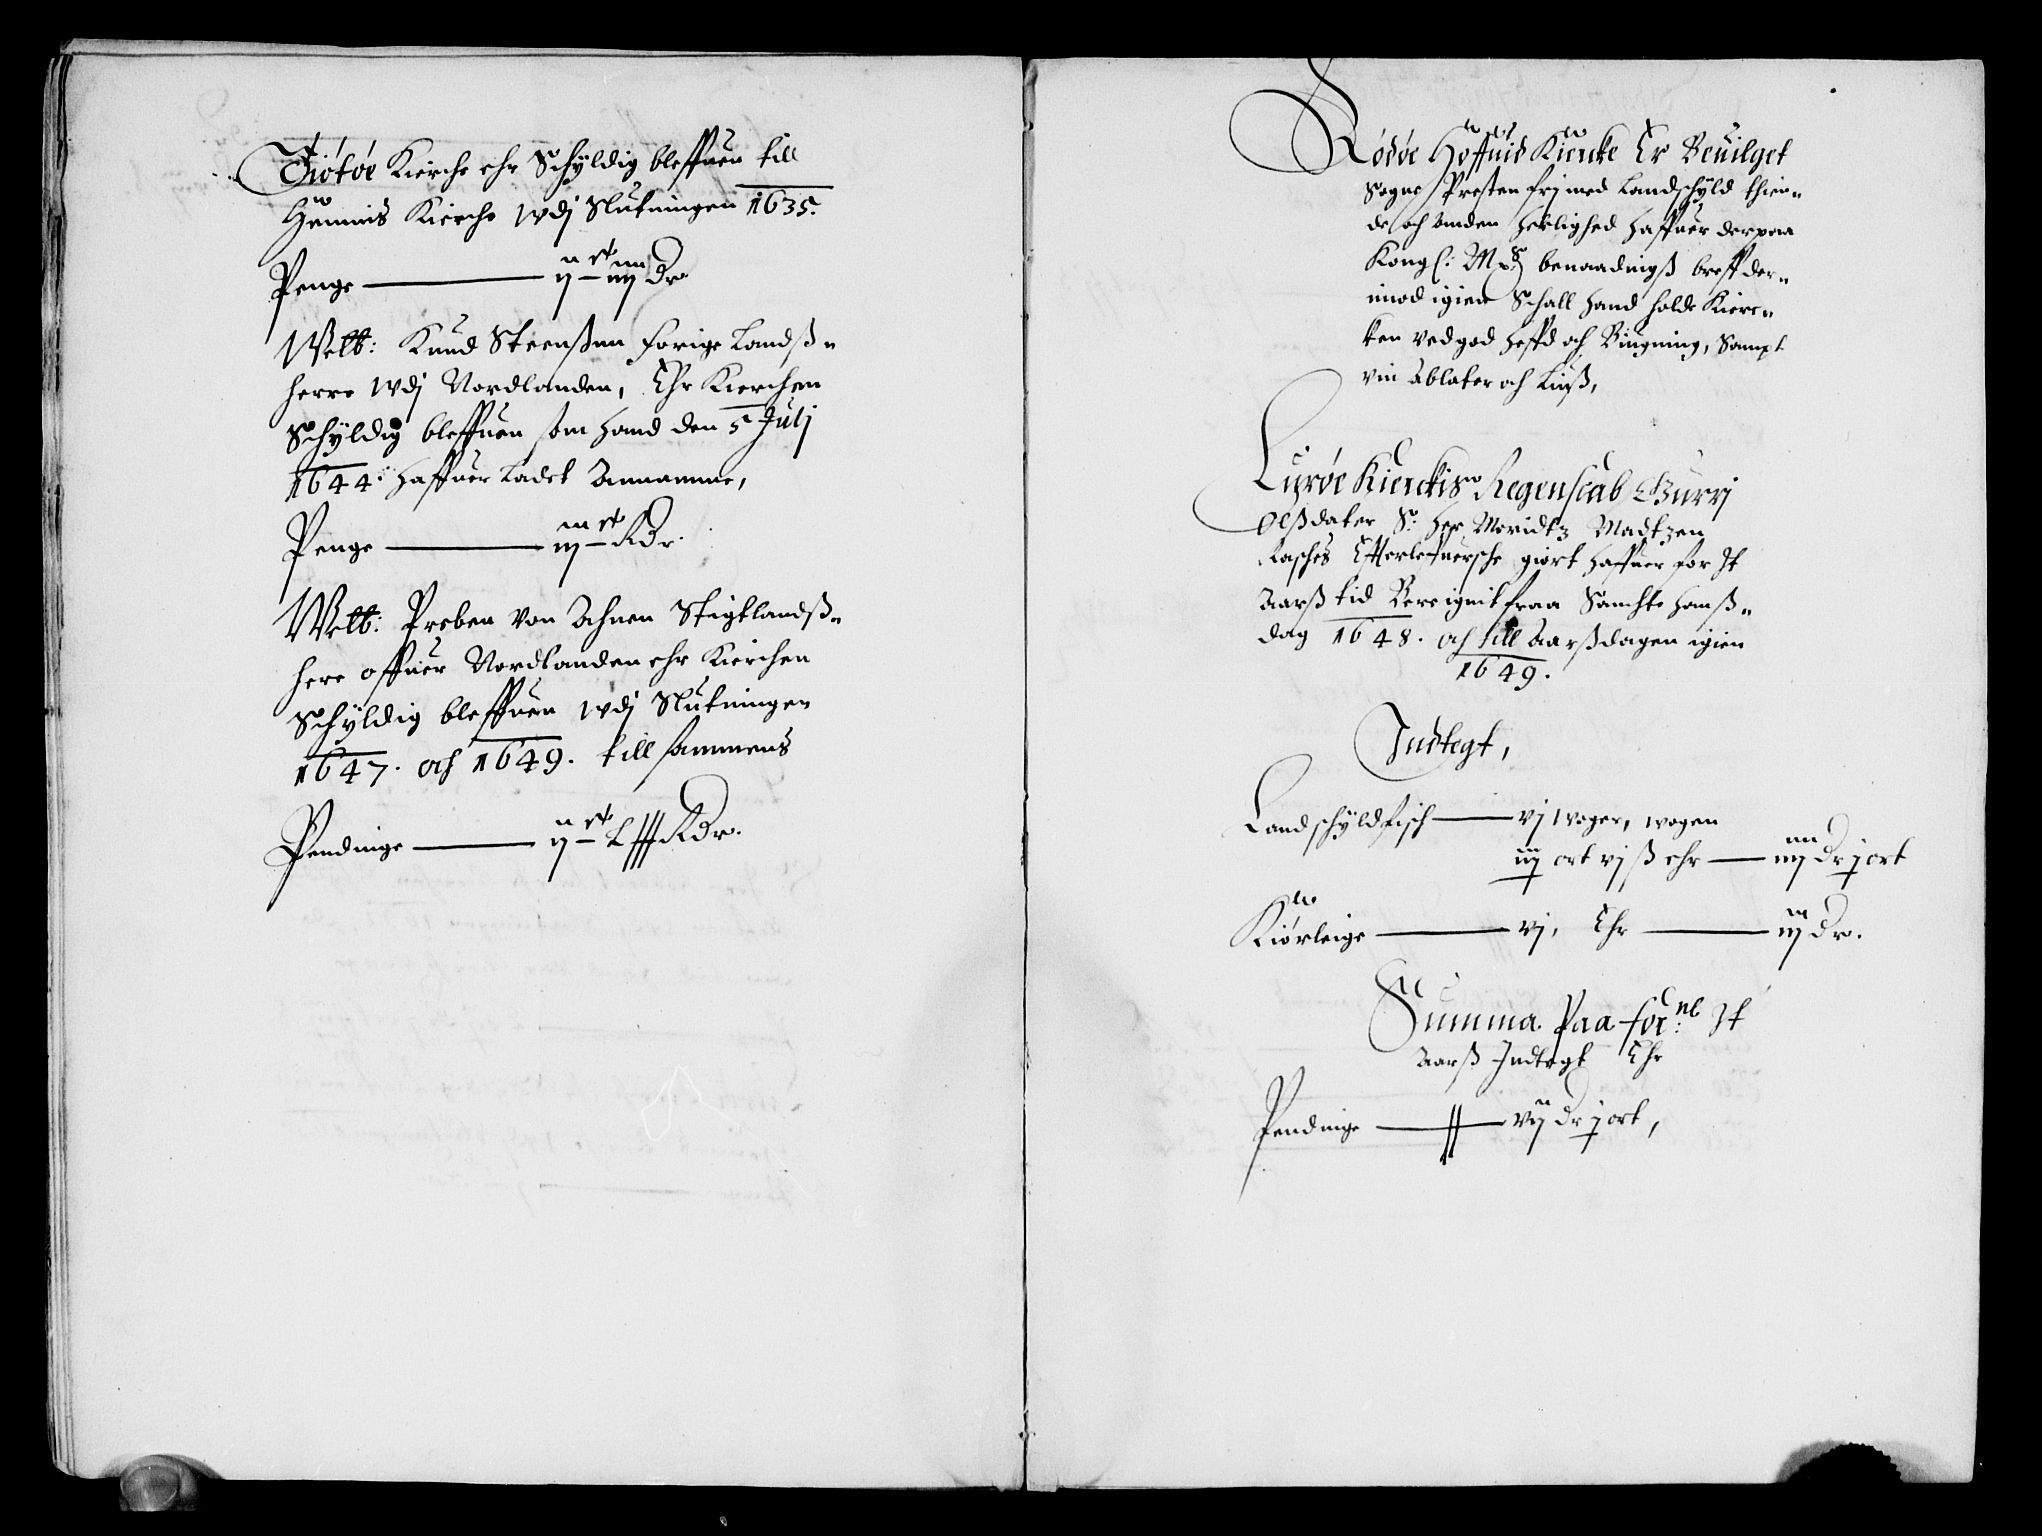 Tiötöe Kierche ehr Schÿldig bleffuen till
Hemnis Kierche wdj Slutningen 1635.
Penge — ij c iiij Dr
Welb: Knud Steensøn forige Landß-
herre wdj Nordlanden, Ehr Kierchen
Schÿldig bleffuen som hand den 5 Julj
1644: haffuer Ladet Annamme,
Penge — iij c Rdr.
Welb: Preben von Ahnen Stigtlandß-
here offuer Nordlanden ehr Kierchen
Schÿldig bleffuen wdj Slutningen
1647. och 1649. till sammens
Pendinge — ij c L Rdr.
Rödöe Höffuid Kiercke Er Beuilget
Sogne Presten frj med Landschÿld thien-
de och anden herlighed haffuer derpaa
Kongl: May: benaadingß breff der-
imod igien Schall hand holde Kierc-
ken ved god heffd och Bÿgning, Sampt
vin Ablater och Liuß,
Lyröe Kierckis Regenscab Gurrj
Olßdater S: Her Moridtz Madtzen
Rasches Efterlefuersche giort haffuer for It
Aarß tid Beregnit fraa Sancte Hanß-
dag 1648. och till Aarßdagen igien
1649.
Indtegt,
Landschÿld fisch — vj woger, wogen
iij ort vj ß ehr — iiij Dr j ort
Kiörleige — vj, Ehr — iij Dr.
Summa Paa for:ne It
Aarß Indtegt Ehr
Pendinge — vij Dr j ort,